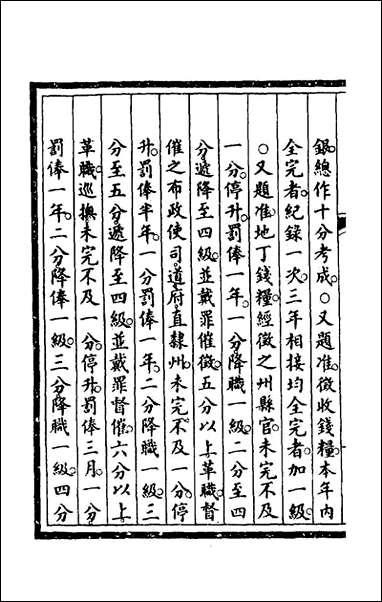 銀總作十分考成○又題准徵收錢糧本年内
全完者紀録一次三年相接均全完者加一級
○又題准地丁錢糧經徵之州縣官未完不及
一分停升罰俸一年一分降職一級二分至四
分遞降至四級並戴罪催徵五分以上革職督
催之布政使司道府直隸州未完不及一分停
升罰俸半年一分罰俸一年二分降職一級三
分至五分遞降至四級並戴罪督催六分以上
革職巡撫未完不及一分停升罰俸三月一分
罰俸一年二分降俸一級三分降職一級四分